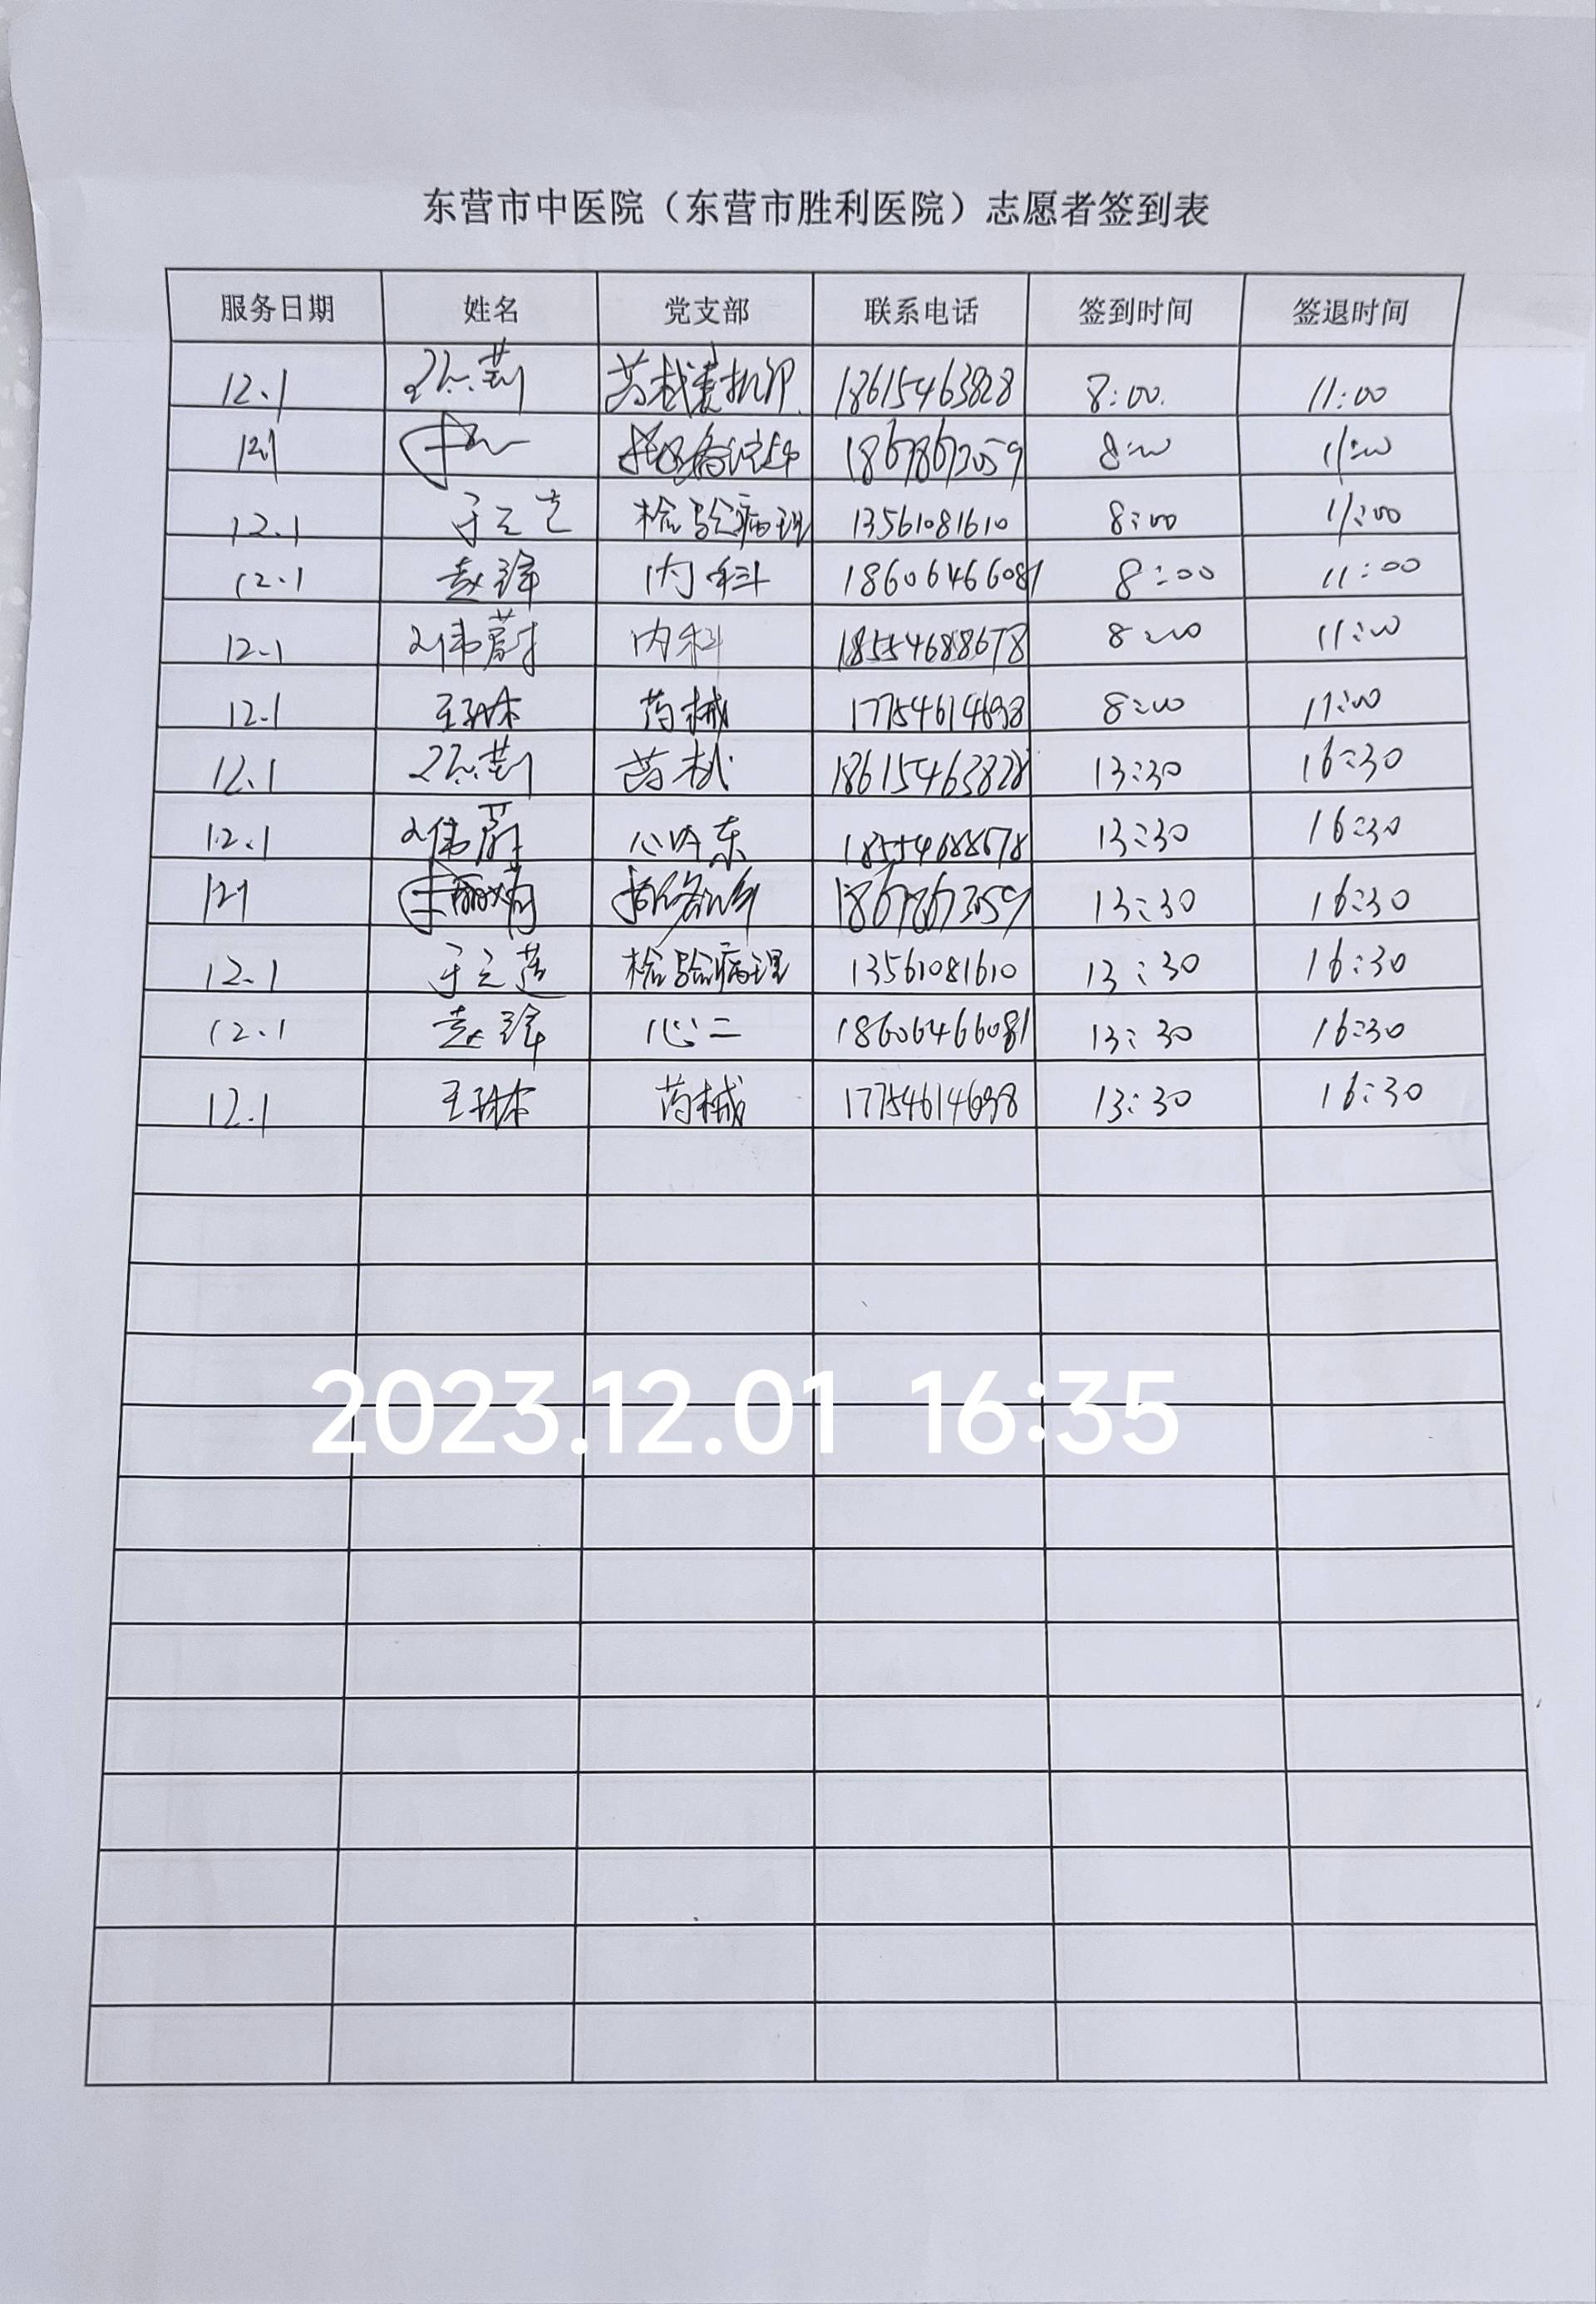 东营市中医院（东营市胜利医院）志愿者签到表
服务日期 姓名 党支部 联系电话 签到时间 签退时间
12.1 18615463828 8:00 11:00
12.1 8:00 11:00
12.1 检验病理 13561081610 8:00 11:00
12.1 内科 18606466081 8:00 11:00
12.1 伟蔚 内科 18554688678 8:00 11:00
12.1 王琳 药械 17754614698 8:00 11:00
12.1 药械 18615463828 13:30 16:30
12.1 伟蔚 心内东 18554688678 13:30 16:30
12.1 13:30 16:30
12.1 于 莲 检验病理 13561081610 13:30 16:30
12.1 心二 18606466081 13:30 16:30
12.1 王琳 药械 17754614698 13:30 16:30
2023.12.01 16:35